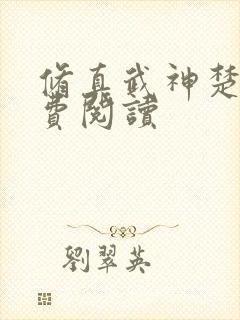 脩真武神楚
費閱讀
劉翠英